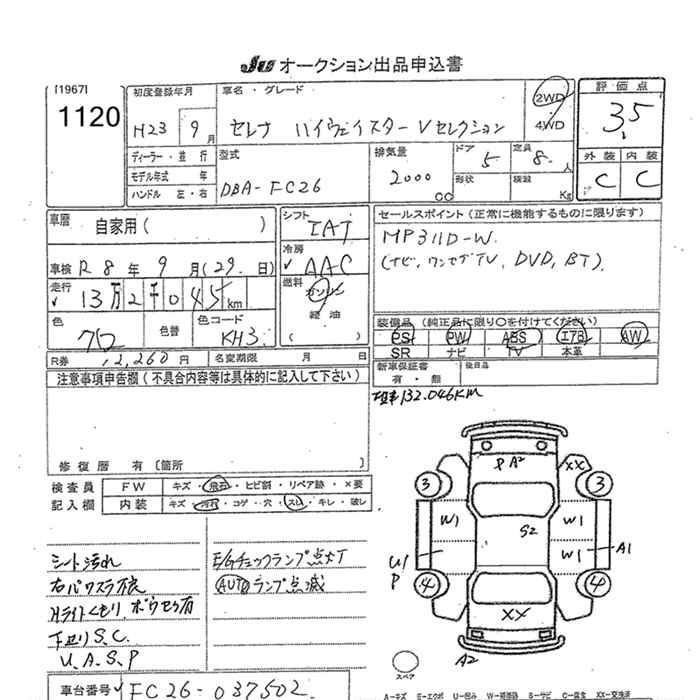 JU オークション出品申込書
[1967]
1120
初度登録年月
H23 9月
車名・グレード
セレナ ハイウェイスター Vセレクション
2WD
4WD
評価点
3.5
外装 内装
C C
ディーラー・並行
モデル年式 年
ハンドル 左・右
型式
DBA-FC26
排気量
2000 CC
ドア
5
定員
8人
形状
積載 Kg
車歴
自家用( )
車検 R8年 9月(29日)
走行
13万2千045km
色
色替
色コード
KH3
シフト
IAT
冷房
AAC
燃料
ガソリン
軽油
( )
セールスポイント(正常に機能するものに限ります)
MP311D-W
(ナビ,ワンセグTV,DVD,BT).
装備品(純正品に限り○を付けてください)
PS PW ABS エアB AW
SR ナビ TV 本革
新車保証書
有・無
後日品
R券 12,260円
名変期限 月 日
132.046KM
注意事項申告欄(不具合内容等は具体的に記入して下さい)
修復歴 有〔箇所
検査員
記入欄
FW キズ・飛石・ヒビ割・リペア跡・×要
内装 キズ・汚れ・コゲ・穴・スレ・キレ・破レ
シート汚れ
右パワスラ不良
Hライトくもり,ボウセイ有
下廻りS.C.
U.A.S.P
E/Gチェックランプ点灯
AUTOランプ点滅
P A2
XX
3 3
W1 W1
S2
W1 A1
U1
P
4 4
XX
A2
スペア
車台番号 FC26-037502
A=キズ E=エクボ U=凹み W=補修跡 S=サビ C=腐食 XX=交換済